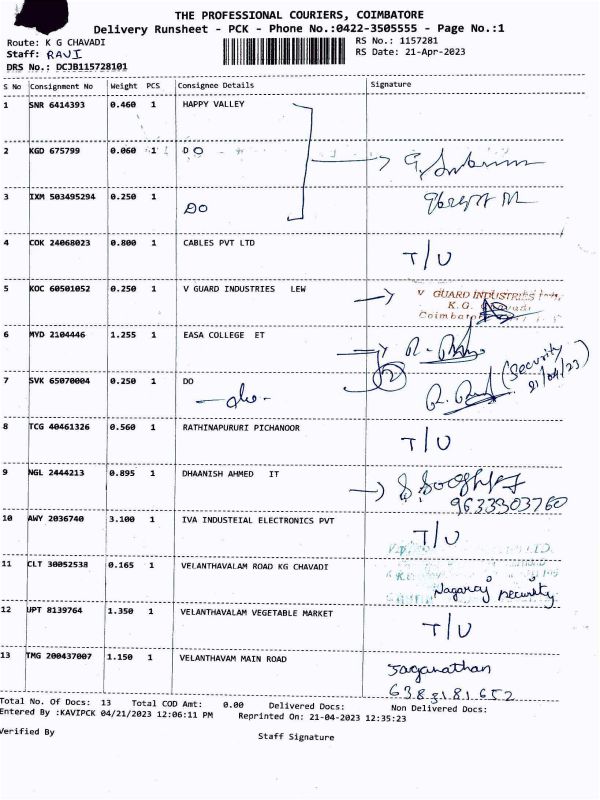 THE PROFESSIONAL COURIERS, COIMBATORE
Delivery Runsheet - PCK - Phone No.:0422-3505555 - Page No.:1
Route: K G CHAVADI
RS No.: 1157281
Staff: RAVI
RS Date: 21-Apr-2023
DRS No.: DCJB115728101
S No Consignment No Weight PCS Consignee Details Signature
1 SNR 6414393 0.460 1 HAPPY VALLEY
2 KGD 675799 0.060 1 DO
3 IXM 503495294 0.250 1 DO
4 COK 24068023 0.800 1 CABLES PVT LTD T/U
5 KOC 60501052 0.250 1 V GUARD INDUSTRIES LEW
V GUARD INDUSTRIES
K.G. Chavadi
6 MYD 2104446 1.255 1 EASA COLLEGE ET
7 SVK 65070004 0.250 1 DO
-do- 2 (Security
21/04/23)
8 TCG 40461326 0.560 1 RATHINAPURURI PICHANOOR T/U
9 NGL 2444213 0.895 1 DHAANISH AHMED IT
9633303760
10 AWY 2036740 3.100 1 IVA INDUSTEIAL ELECTRONICS PVT T/U
11 CLT 30052538 0.165 1 VELANTHAVALAM ROAD KG CHAVADI
Nagaraj security
12 UPT 8139764 1.350 1 VELANTHAVALAM VEGETABLE MARKET T/U
13 TMG 200437007 1.150 1 VELANTHAVAM MAIN ROAD Jaganathan
6383181652
Total No. Of Docs: 13 Total COD Amt: 0.00 Delivered Docs: Non Delivered Docs:
Entered By :KAVIPCK 04/21/2023 12:06:11 PM Reprinted On: 21-04-2023 12:35:23
Verified By
Staff Signature